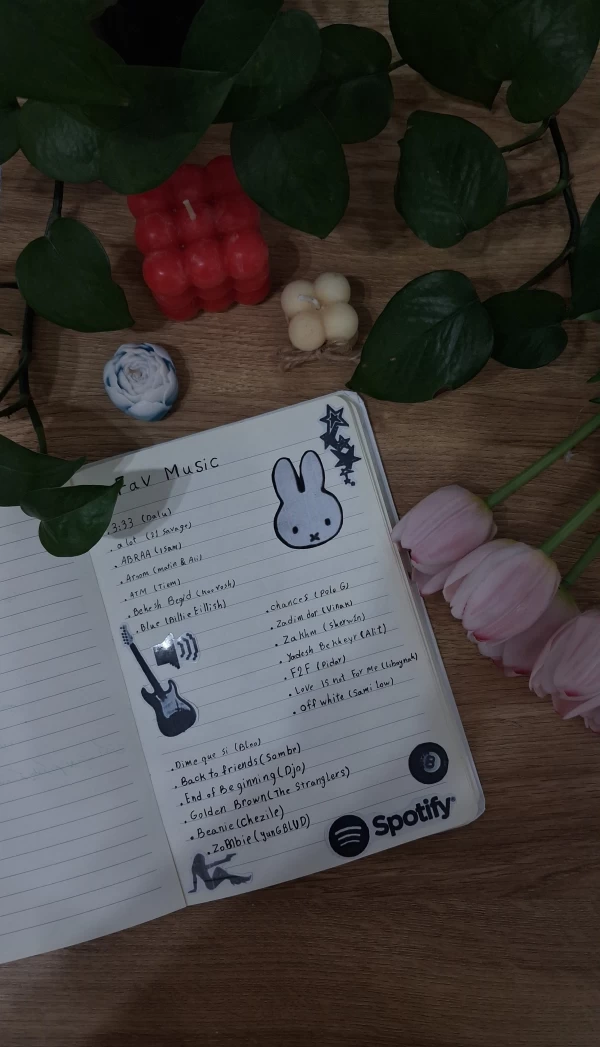 Fav Music
. 3:33 (Dalu)
. a lot (21 Savage)
. ABRAA (Isam)
. Aroom (matin & Ali)
. ATM (Tiem)
. Behesh Begid (koorosh)
. Blue (Billie Eillish)
. chances (Polo G)
. Zadim dar (Vinak)
. Zakhm (Sherwin)
. Yadesh Bekheyr (Alit)
. F2F (Pidar)
. Love Is not For Me (Libwynah)
. Off white (Sami low)
. Dime que si (Blno)
. Back to friends (Sombr)
. End of Beginning (Djo)
. Golden Brown (The Stranglers)
. Beanie (Chezile)
. Zombie (yunGBLUD)
8
Spotify